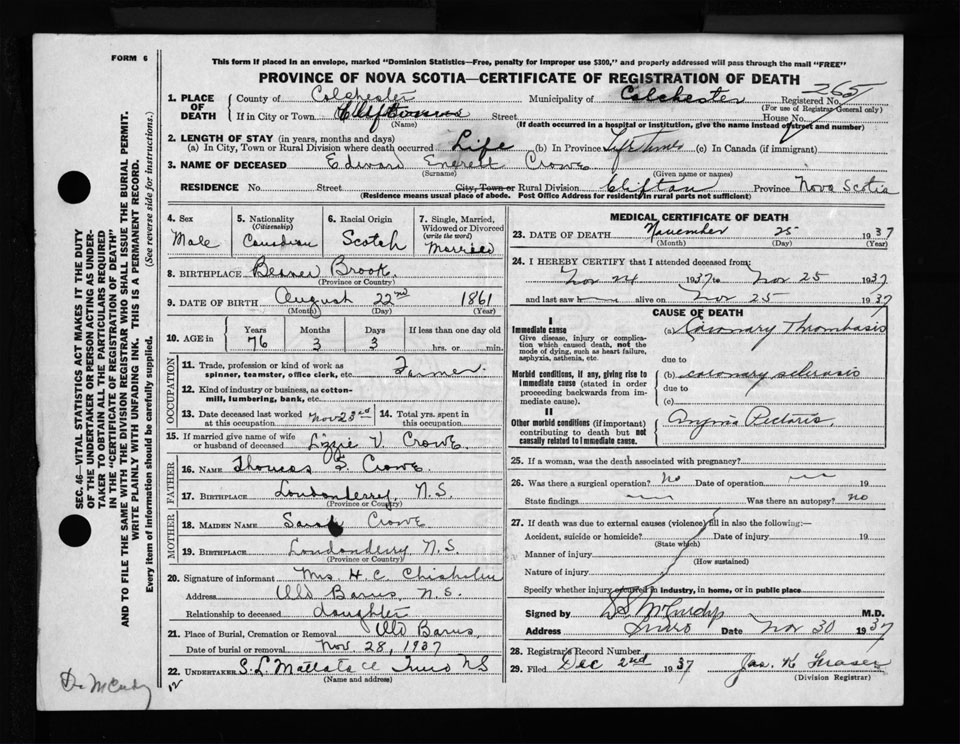 FORM 6
This form if placed in an envelope, marked "Dominion Statistics—Free, penalty for improper use $300," and properly addressed will pass through the mail "FREE"
PROVINCE OF NOVA SCOTIA—CERTIFICATE OF REGISTRATION OF DEATH
265
1. PLACE OF DEATH
County of Colchester Municipality of Colchester Registered No.
(For use of Registrar General only)
If in City or Town Street House No.
(Name) (If death occurred in a hospital or institution, give the name instead of street and number)
2. LENGTH OF STAY (in years, months and days)
(a) In City, Town or Rural Division where death occurred Life (b) In Province Life Time (c) In Canada (if immigrant)
3. NAME OF DECEASED Edward Everett Crowe
(Surname) (Given name or names)
RESIDENCE No. Street City, Town or Rural Division Clifton Province Nova Scotia
(Residence means usual place of abode. Post Office Address for residents in rural parts not sufficient)
4. Sex Male
5. Nationality (Citizenship) Canadian
6. Racial Origin Scotch
7. Single, Married, Widowed or Divorced (write the word) Married
8. BIRTHPLACE Beaver Brook.
(Province or Country)
9. DATE OF BIRTH August 22nd 1861
(Month) (Day) (Year)
10. AGE in Years Months Days If less than one day old
76 3 3 hrs. or min.
OCCUPATION
11. Trade, profession or kind of work as spinner, teamster, office clerk, etc. Farmer.
12. Kind of industry or business, as cotton-mill, lumbering, bank, etc.
13. Date deceased last worked at this occupation Nov 23rd
14. Total yrs. spent in this occupation
15. If married give name of wife or husband of deceased Lizzie V. Crowe
FATHER
16. NAME Thomas S. Crowe
17. BIRTHPLACE Londonderry, N.S.
(Province or Country)
MOTHER
18. MAIDEN NAME Sarah Crowe
19. BIRTHPLACE Londonderry N.S.
(Province or Country)
20. Signature of informant Mrs. H. C. Chisholm
Address Old Barns, N.S.
Relationship to deceased daughter
21. Place of Burial, Cremation or Removal Old Barns,
Date of burial or removal Nov. 28, 1937
22. UNDERTAKER S. L. Truro NS
(Name and address)
MEDICAL CERTIFICATE OF DEATH
23. DATE OF DEATH November 25 1937
(Month) (Day) (Year)
24. I HEREBY CERTIFY that I attended deceased from:
Nov 24 1937 to Nov 25 1937
and last saw alive on Nov 25 1937
CAUSE OF DEATH
I
Immediate cause
Give disease, injury or complication which caused death, not the mode of dying, such as heart failure, asphyxia, asthenia, etc.
(a) Coronary Thrombosis
due to
Morbid conditions, if any, giving rise to immediate cause (stated in order proceeding backwards from immediate cause).
(b) coronary sclerosis
due to
(c)
II
Other morbid conditions (if important) contributing to death but not causally related to immediate cause.
Angina Pectoris
25. If a woman, was the death associated with pregnancy?
26. Was there a surgical operation? No Date of operation 19
State findings Was there an autopsy? no
27. If death was due to external causes (violence) fill in also the following:—
Accident, suicide or homicide? Date of injury 19
(State which)
Manner of injury
(How sustained)
Nature of injury
Specify whether injury occurred in industry, in home, or in public place
Signed by McCurdy M.D.
Address Truro Date Nov 30 1937
28. Registrar's Record Number
29. Filed Dec 2nd 1937 Jas. K. Fraser
(Division Registrar)
SEC. 46—VITAL STATISTICS ACT MAKES IT THE DUTY
OF THE UNDERTAKER OR PERSON ACTING AS UNDER-
TAKER TO OBTAIN ALL THE PARTICULARS REQUIRED
IN THE "CERTIFICATE OF REGISTRATION OF DEATH"
AND TO FILE THE SAME WITH THE DIVISION REGISTRAR WHO SHALL ISSUE THE BURIAL PERMIT.
WRITE PLAINLY WITH UNFADING INK. THIS IS A PERMANENT RECORD.
Every item of information should be carefully supplied. (See reverse side for instructions.)
Dr McCurdy